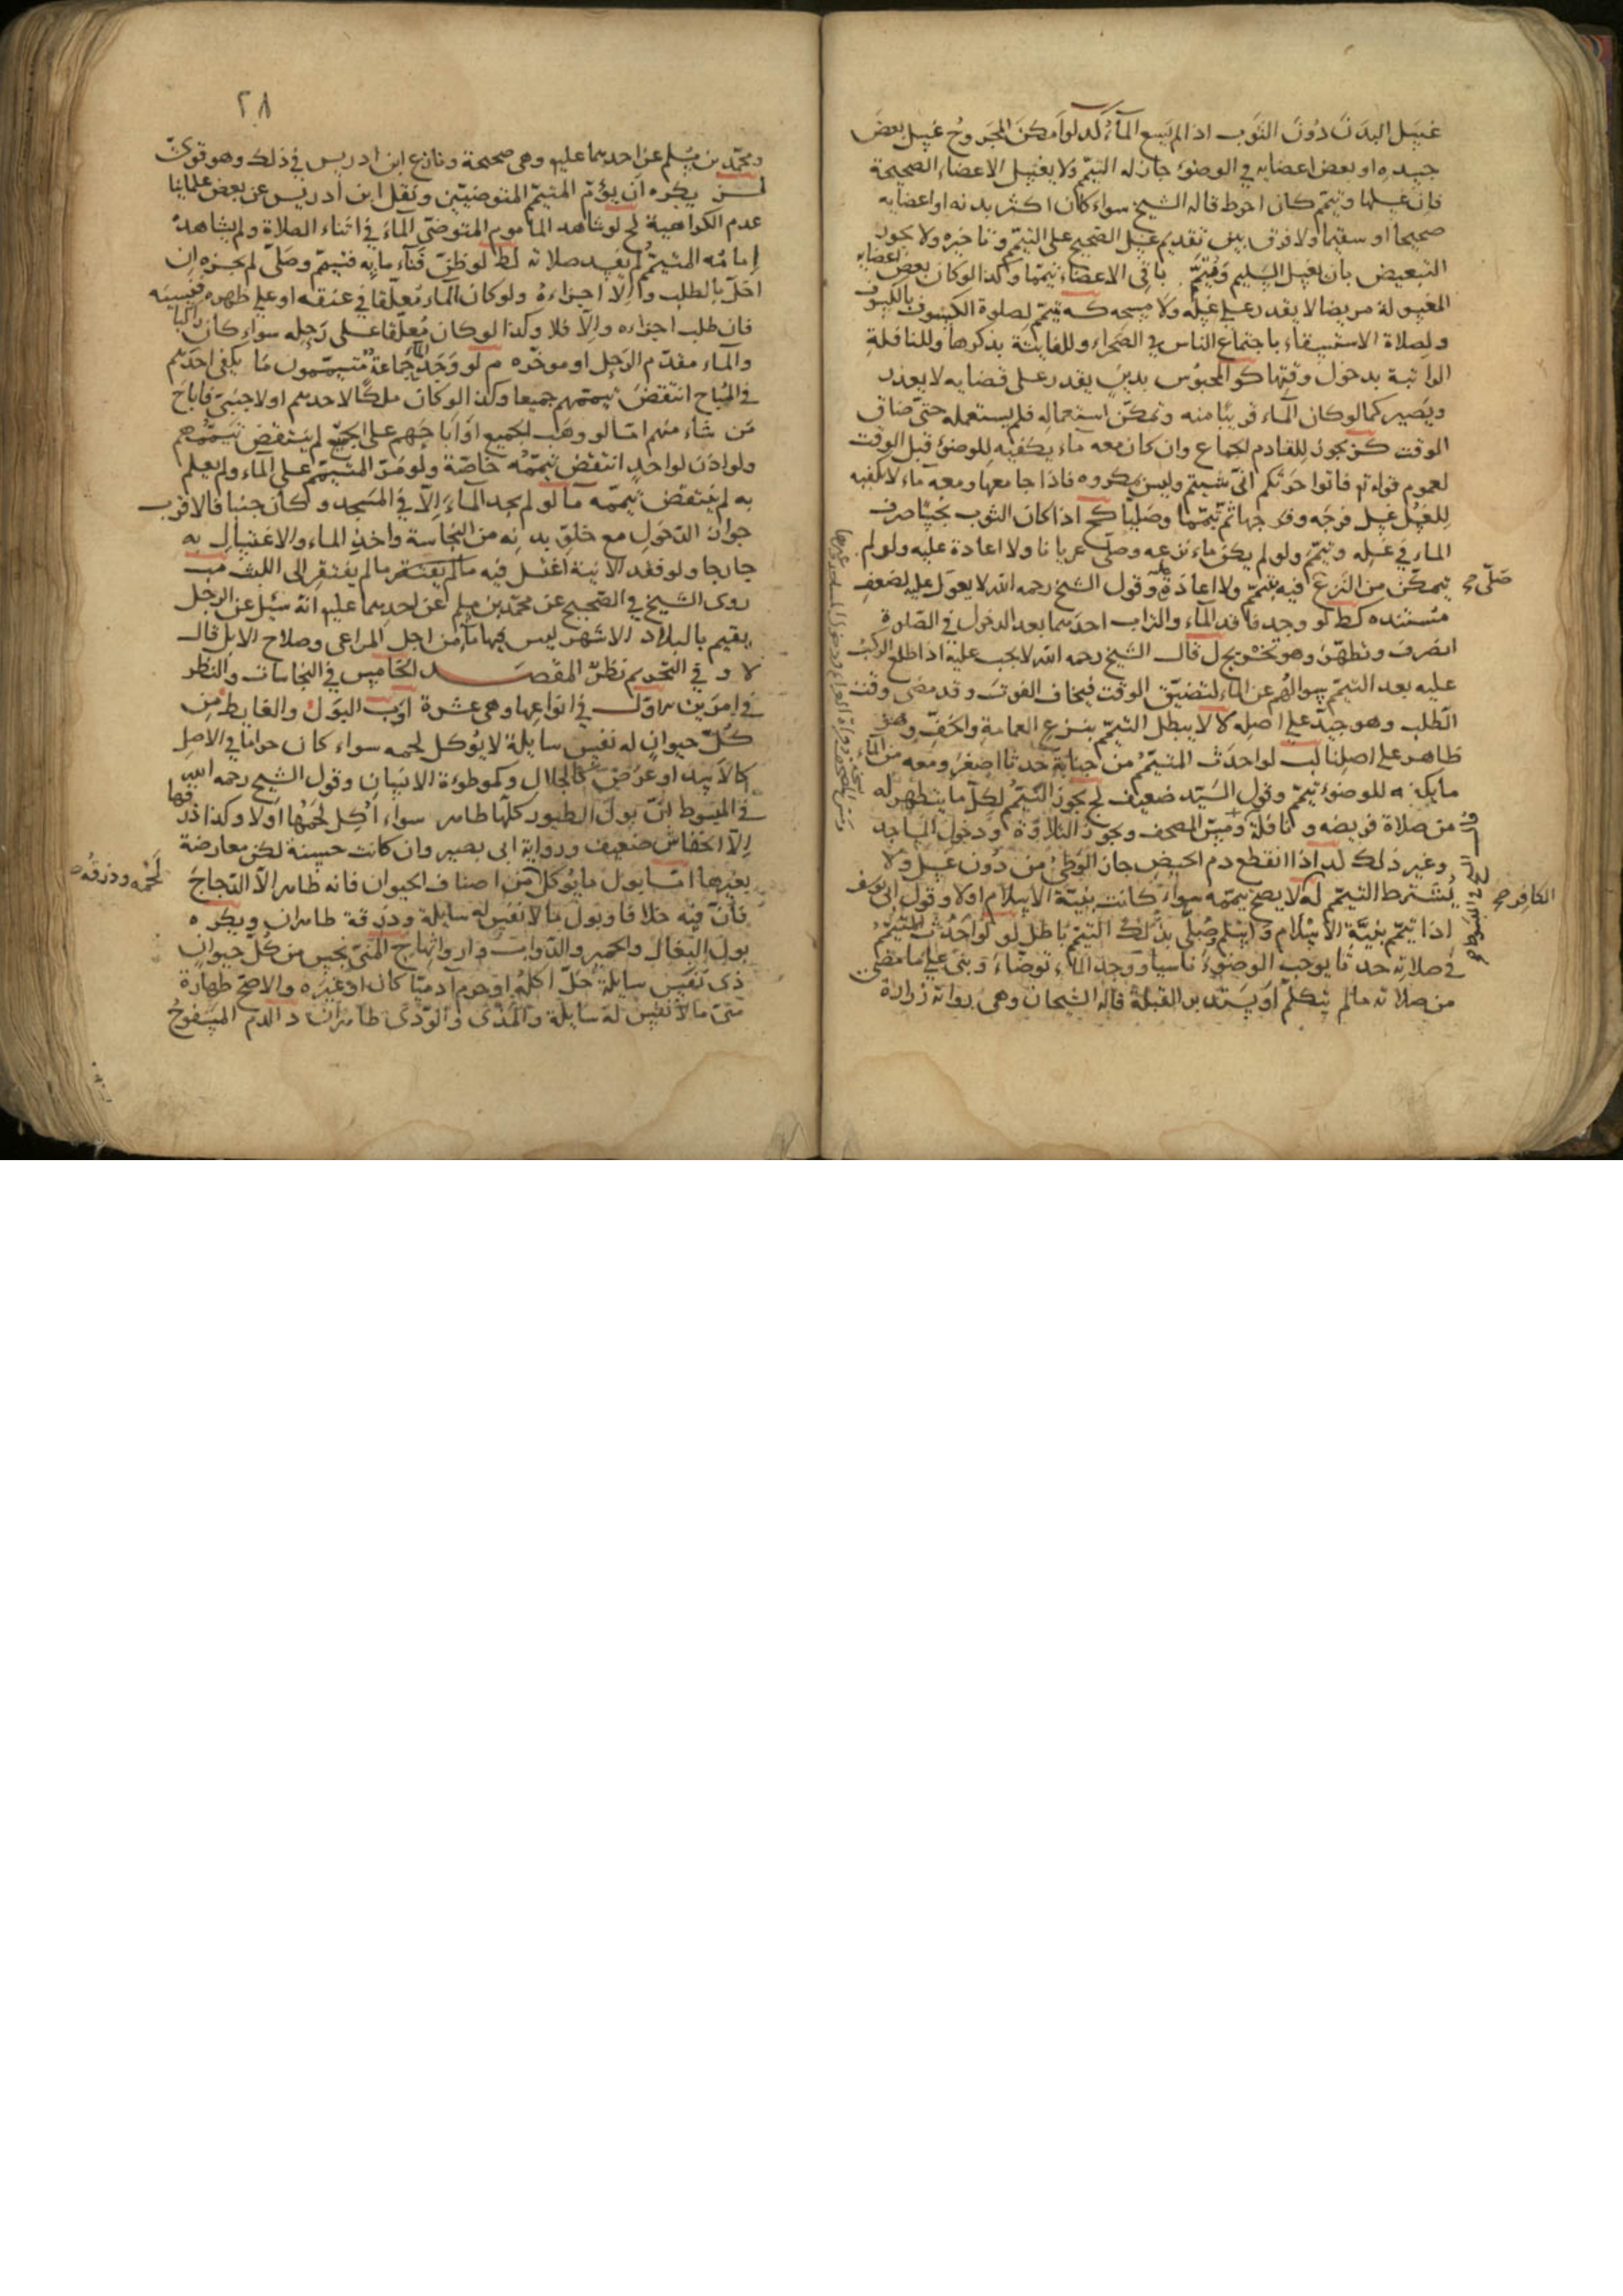 غسل البدن دون الثوب اذا لم يسع الماء كد لو امكن المجروح غسل بعض
جسده او بعض اعضايه في الوضوء جاز له التيمم ولا يغسل الاعضاء الصحيحة
فان غسلها وتيمم كان احوط قاله الشيخ سواء كان اكثر بدنه او اعضايه
صحيحا او سقيما ولا فرق بين تقديم غسل الصحيح على التيمم وتاخيره ولا يجوز
التبعيض بان يغسل السليم ويتيمم باقي الاعضاء تيمما وكذا لو كان بعض اعضايه
المغسولة مريضا لا يقدر على غسله ولا مسحه كه يتيمم لصلوة الكسوف بالكسوف
ولصلاة الاستسقاء باجتماع الناس في الصحراء وللفايتة بذكرها وللنافلة
الراتبة بدخول وقتها كو المحبوس بدين يقدر على قضايه لا يعذر
ويصير كما لو كان الماء قريبا منه وتمكن استعماله فلم يستعمله حتى ضاق
الوقت كز يجوز للقادم الجماع وان كان معه ماء يكفيه للوضوء قبل الوقت
لعموم قوله تع فاتوا حرثكم انى شيتم وليس بمكروه فاذا جامعها ومعه ماء لا يكفيه
للغسل غسل فرجه وفرجها ثم تيمما وصليا كح اذا كان الثوب نجسا صرف
الماء في غسله وتيمم ولو لم يكن ماء نزعه وصلى عريانا ولا اعادة عليه ولو لم
يتمكن من النزع فيه بتيمم ولا اعادة عليه وقول الشيخ رحمه الله لا يعول عليه لضعف
صلى صح
مستنده كط لو وجد فاقد الماء والتراب احدهما بعد الدخول في الصلوة
انصرف وتطهر وهو تخريج ل قال الشيخ رحمه الله لا يجب عليه اذا طلع الركب
عليه بعد التيمم سوالهم عن الماء لتضيق الوقت فيخاف الفوت وقد مضى وقت
الطلب وهو جيد على اصله لا لا يبطل التيمم بنزع العمامة والخف وهو
ظاهر على اصلنا لب لو احدث المتيمم من جنابة حدثا اصغر ومعه من الماء
ما يكفيه للوضوء تيمم وقول السيد ضعيف لج يجوز التيمم لكل ما يتطهر له
من صلاة فريضه و نافلة ومس المصحف ويجوز التلاوة ودخول المساجد
وغير ذلك لد اذا انقطع دم الحيض جاز الوطئ من دون غسل ولا
يشترط التيمم له لا يصح تيممه سواء كانت بنية الاسلام اولا وقول ابي يوسف
الكافر صح
اذا تيمم بنية الاسلام واسلم وصلى بذلك التيمم باطل لو لو احدث المتيمم
في صلاته حدثا يوجب الوضوء ناسيا ووجد الماء توضاء وبنى على ما مضى
من صلاته ما لم يتكلم او يستدبر القبلة قاله الشيخان وهي رواية زرارة
٢٨
ومحمد بن مسلم عن احدهما عليه وهي صحيحة ونازع ابن ادريس في ذلك وهو قوي
لز يكره ان يؤم المتيمم المتوضيين ونقل ابن ادريس عن بعض علماينا
عدم الكراهية لح لو شاهد الماموم المتوضي الماء في اثناء الصلاة ولم يشاهده
امامه المتيمم لم يفسد صلاته لط لو ظن فناء مايه فتيمم وصلى لم يجزه ان
اخل بالطلب والا اجزاءه ولو كان الماء معلقا في عنقه او على ظهره فنسيه
فان طلب اجزاه والا فلا وكذا لو كان معلقا على رحله سواء كان راكبا
والماء مقدم الرحل او موخره م لو وجد جماعة متيممون ما يكفي احدهم
في المباح انتقض تيممهم جميعا وكذا لو كان ملكا لاحدهم او لاجنبي فاباح
من شاء منهم اما لو وهب الجميع او اباحهم على الجميع لم ينتقض تيممهم
ولو اذن لواحد انتقض تيممه خاصة ولو مر المتيمم على الماء ولم يعلم
به لم ينتقض تيممه ما لو لم يجد الماء الا في المسجد وكان جنبا فالاقرب
جواز الدخول مع خلو بدنه من النجاسة واخذ الماء والاغتسال به
خارجا ولو فقد الانية اغتسل فيه ما لم يفتقر الى اللبث مب
روى الشيخ في الصحيح عن محمد بن مسلم عن احدهما عليه انه سئل عن الرجل
يقيم بالبلاد الاشهر ليس فيها ماء من اجل المراعي وصلاح الابل قال
لا و في التحريم نظر المقصد الخامس في النجاسات والنظر
في امرين الاول في انواعها وهي عشرة ا وب البول والغايط من
كل حيوان له نفس سايلة لا يؤكل لحمه سواء كان حراما في الاصل
كالاسد او عرض كالجلال وكموطوءة الانسان وقول الشيخ رحمه الله
في المبسوط ان بول الطيور كلها طاهر سواء اكل لحمها اولا وكذا ذرقها
الا الخفاش ضعيف ورواية ابي بصير وان كانت حسنة لكن معارضة
بغيرها اما بول ما يؤكل من اصناف الحيوان فانه طاهر الا الدجاج
لحمه وذرقه
فان فيه خلافا وبول ما لا نفس له سايلة وذرقه طاهران ويكره
بول البغال والحمير والدواب وارواثها ج المني نجس من كل حيوان
ذي نفس سايلة حل اكله او حرم ادميا كان او غيره والاصح طهارة
مني ما لا نفس له سايلة والمذي والوذي طاهران د الدم المسفوح